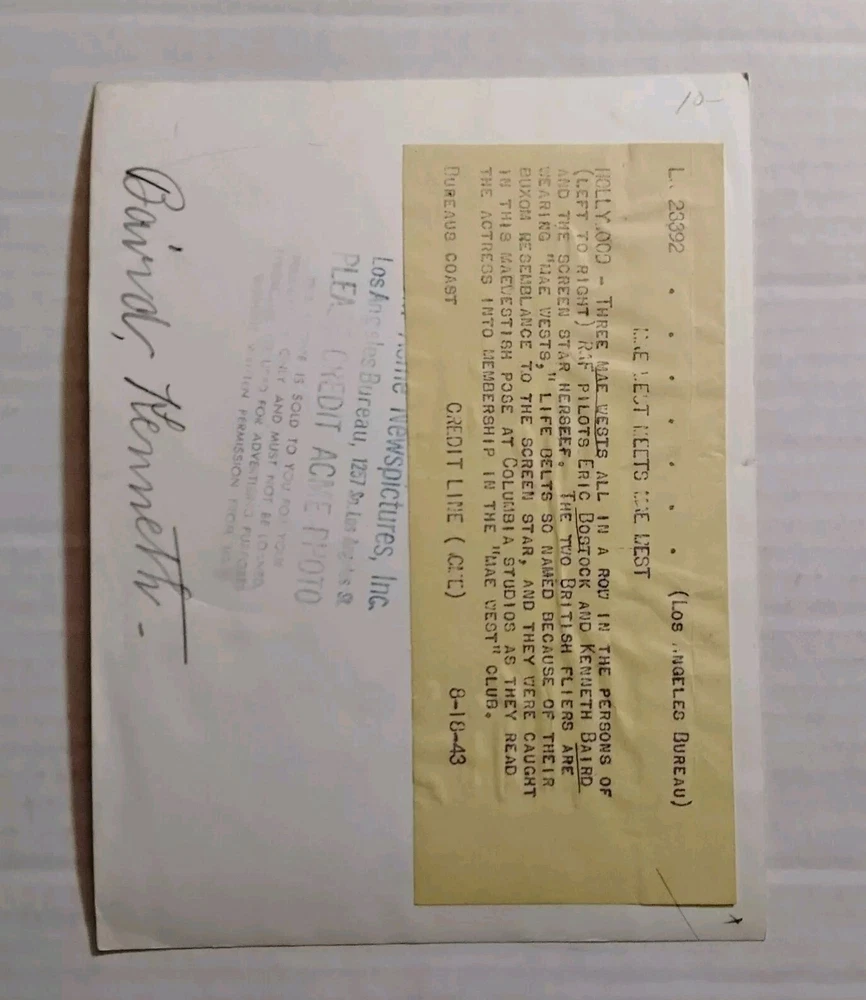 10-
LA 23392 . . . . . . (LOS ANGELES BUREAU)
MAE WEST MEETS MAE WEST
HOLLYWOOD - THREE MAE WESTS ALL IN A ROW IN THE PERSONS OF
(LEFT TO RIGHT) RAF PILOTS ERIC BOSTOCK AND KENNETH BAIRD
AND THE SCREEN STAR HERSEEF. THE TWO BRITISH FLIERS ARE
WEARING "MAE WESTS," LIFE BELTS SO NAMED BECAUSE OF THEIR
BUXOM RESEMBLANCE TO THE SCREEN STAR, AND THEY WERE CAUGHT
IN THIS MAEWESTISH POSE AT COLUMBIA STUDIOS AS THEY READ
THE ACTRESS INTO MEMBERSHIP IN THE "MAE WEST" CLUB.
BUREAUS COAST CREDIT LINE (ACME) 8-18-43
Acme Newspictures, Inc.
Los Angeles Bureau, 1257 So Los Angeles St.
PLEA CREDIT ACME PHOTO
IS SOLD TO YOU FOR YOUR
ONLY AND MUST NOT BE LOANED,
USED FOR ADVERTISING PURPOSES
WRITTEN PERMISSION FROM
Baird, Kenneth -